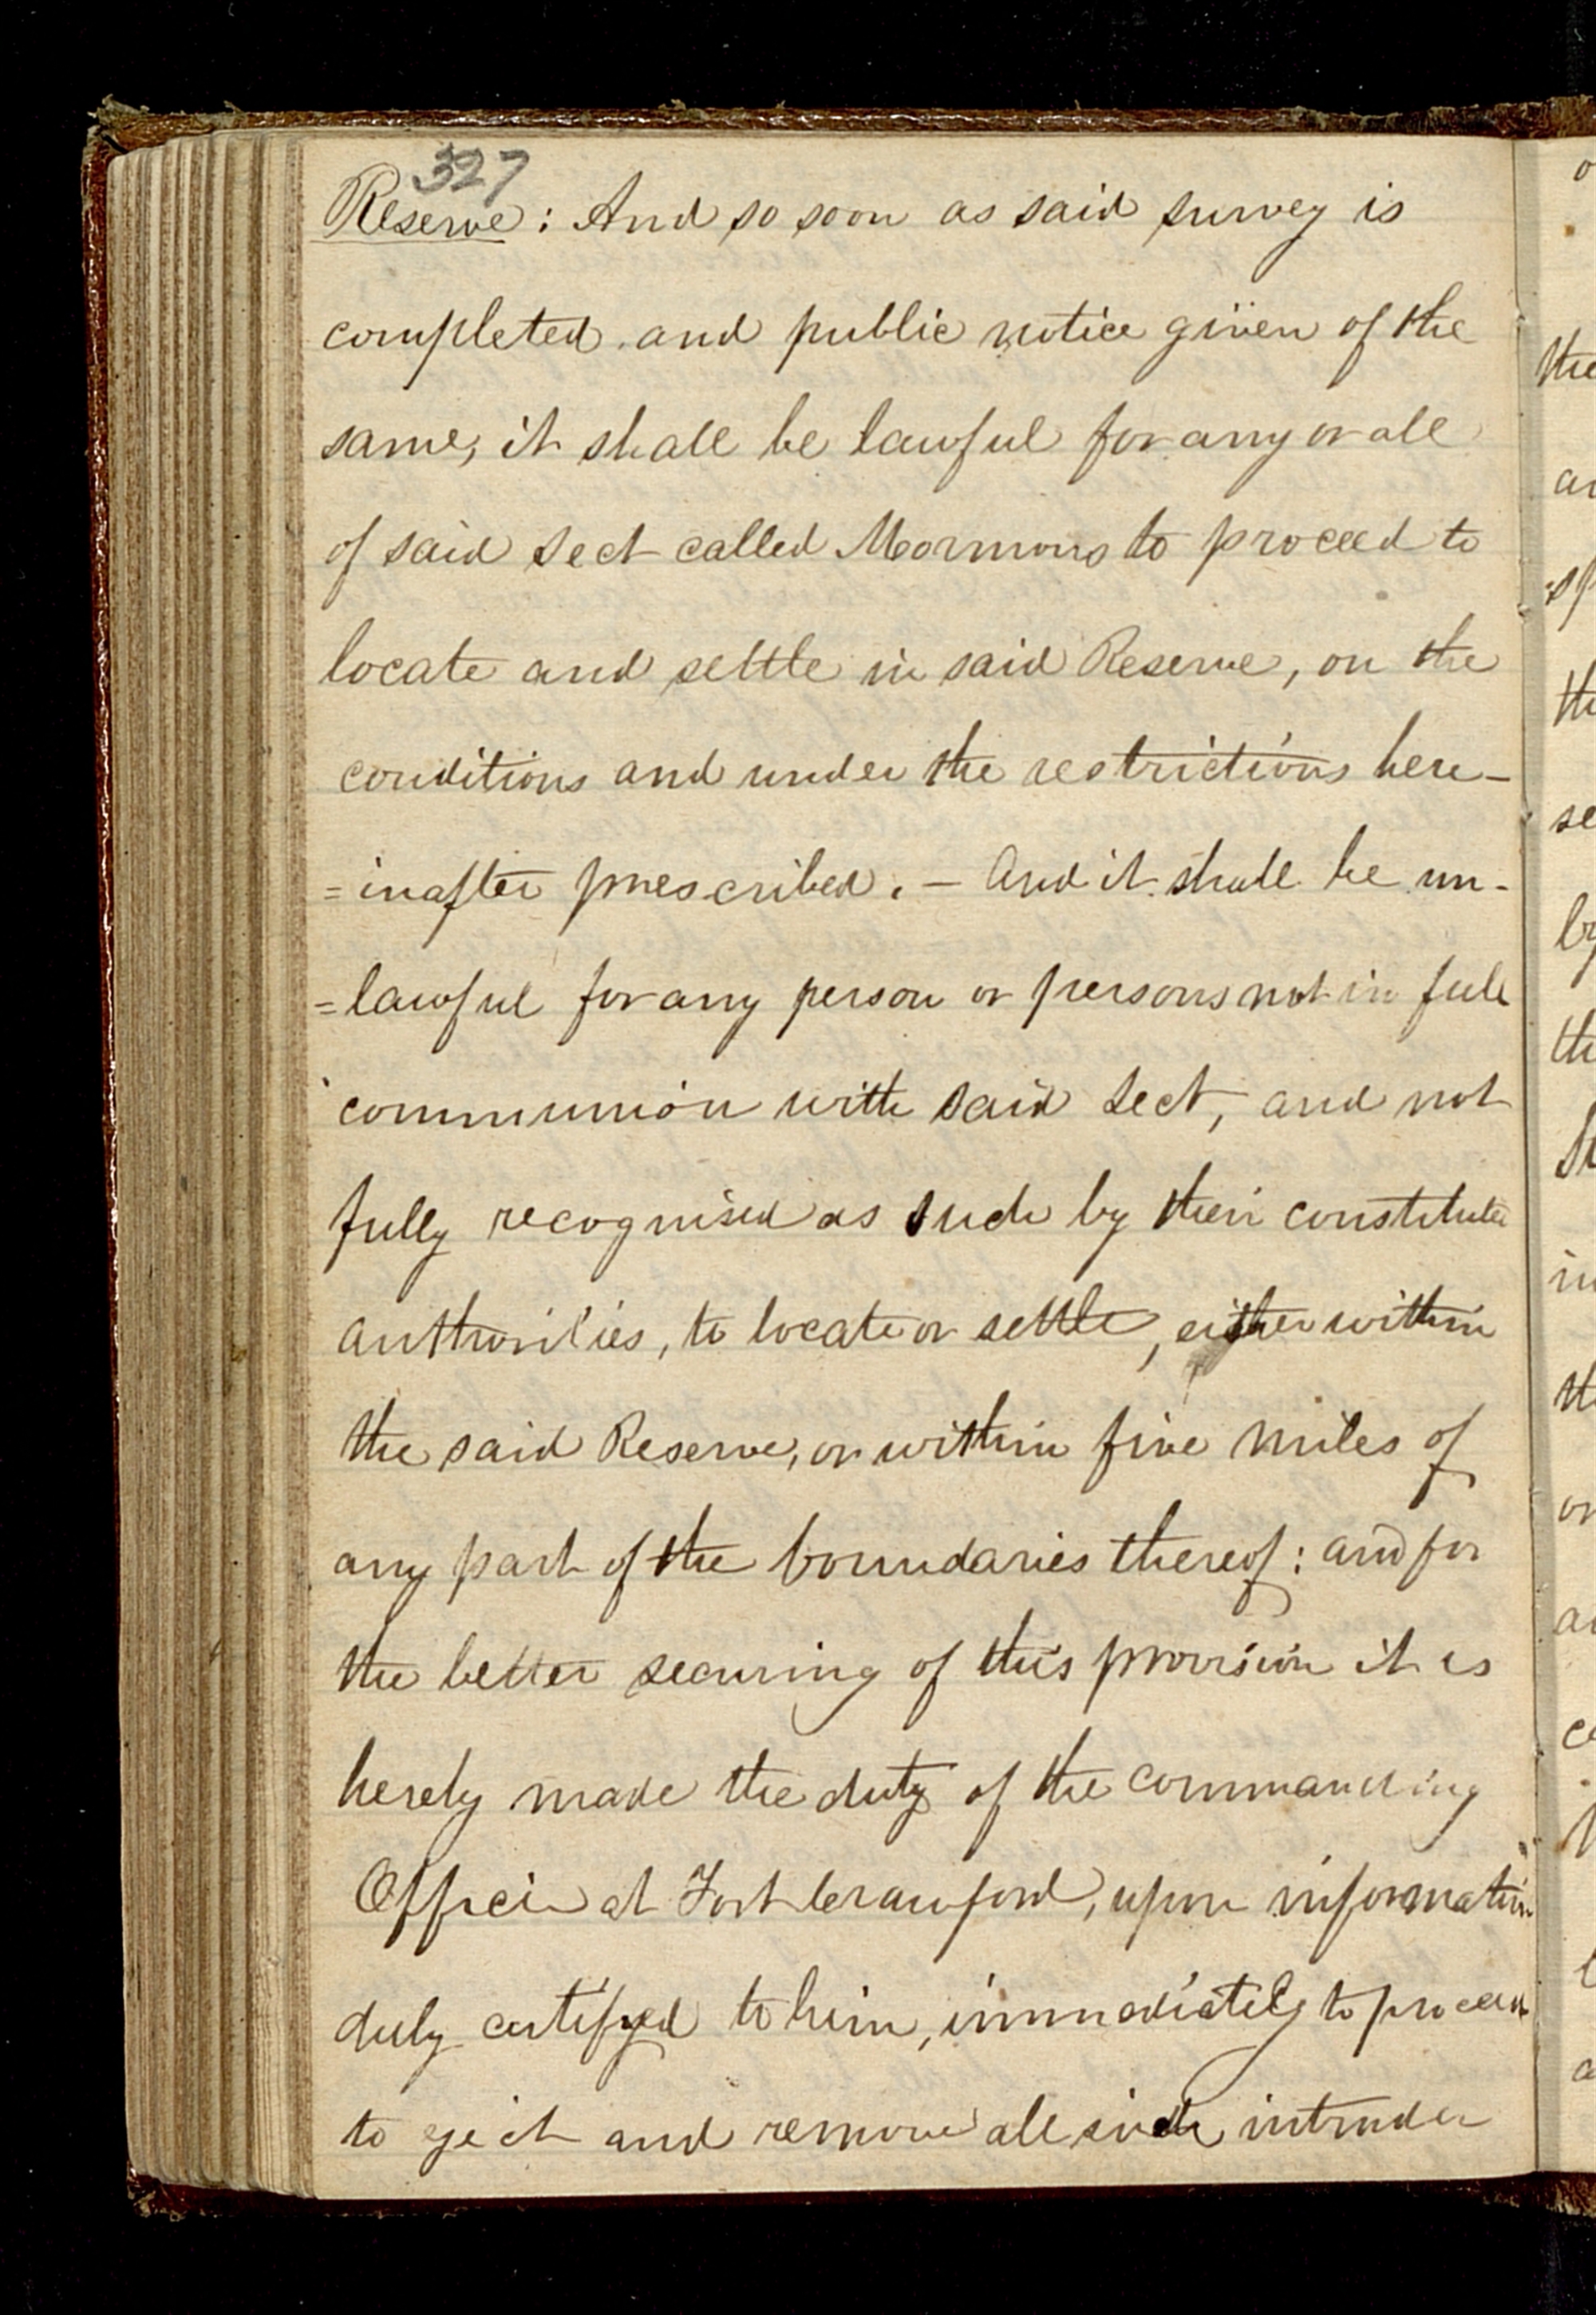 327
Reserve: And so soon as said survey is
completed and public notice given of the
same, it shall be lawful for any or all
of said sect called Mormons to proceed to
locate and settle in said Reserve, on the
conditions and under the restrictions here-
=inafter prescribed. — And it shall be un-
=lawful for any person or persons not in full
communion with said sect, and not
fully recognised as such by their constituted
authorities, to locate or settle, either within
the said Reserve, or within five miles of
any part of the boundaries thereof: and for
the better securing of this provision it is
hereby made the duty of the commanding
Officer at Fort Crawford, upon information
duly certifyed to him, immediately to proceed
to eject and remove all such intruder